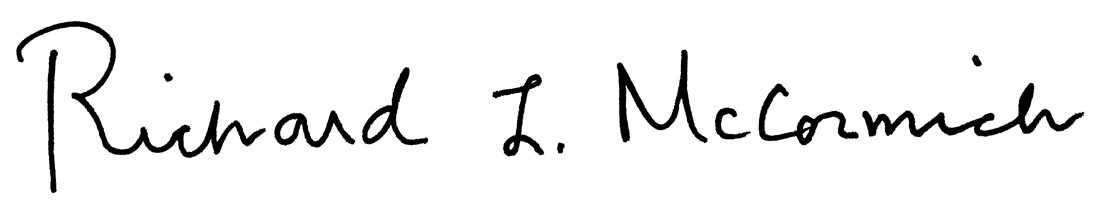 Richard L. McCormick